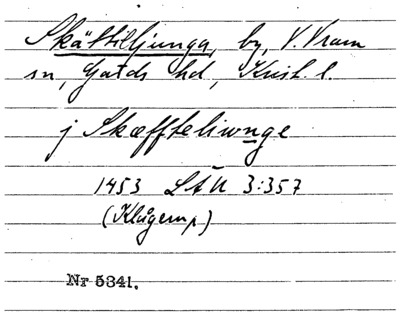 Skättilljunga, by, V. Vram
sn, Gärds hd, Krist. l.
j Skæffteliwnge
1453 LAU 3:357
(Klågerup)
Nr 5341.